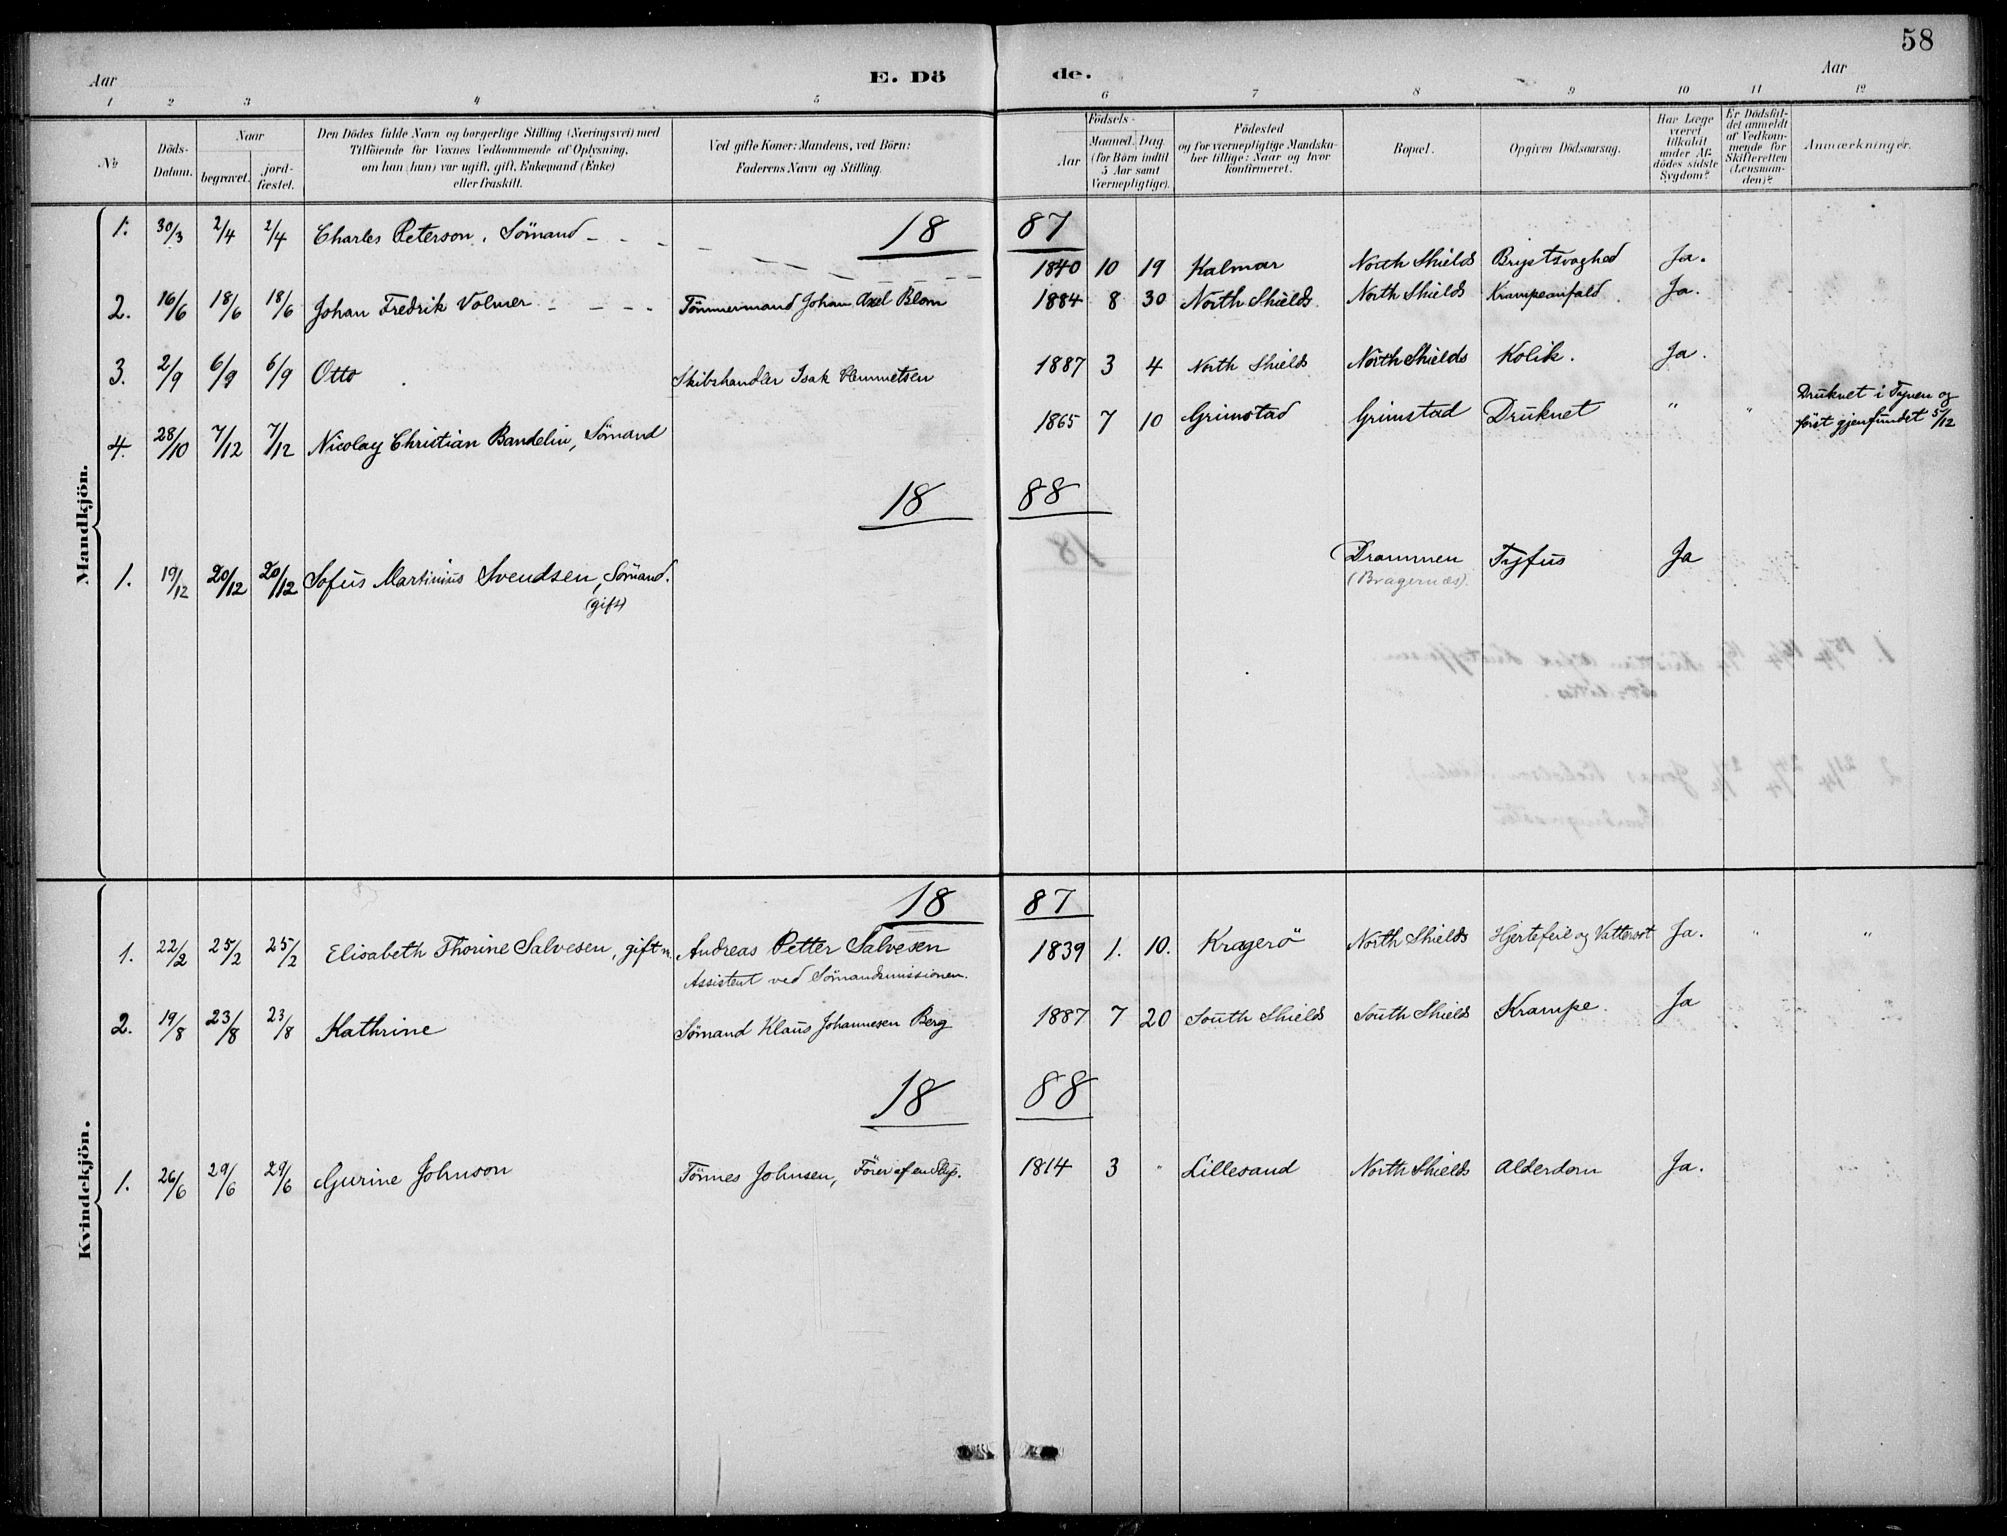 58
Aar E. Dö de. Aar
1 2 3 4 5 6 7 8 9 10 11 12
No Döds-Datum. Naar begravet. jordfæstet. Den Dödes fulde Navn og borgerlige Stilling (Næringsvei) med Tilföiende for Voxnes Vedkommende af Oplysning, om han (hun) var ugift, gift, Enkemand (Enke) eller fraskilt. Ved gifte Koner: Mandens, ved Börn: Faderens Navn og Stilling. Födsels- Aar Maaned. Dag (for Börn indtil 5 Aar samt Værnepligtige). Födested og for værnepligtige Mandskaber tillige: Naar og hvor konfirmeret. Bopæl. Opgiven Dödsaarsag. Har Læge været tilkaldt under Afdödes sidste Sygdom? Er Dödsfaldet anmeldt af Vedkommende for Skifteretten (Lensmanden)? Anmærkninger.
Mandkjön.
18 87
1. 30/3 2/4 2/4 Charles Peterson, Sömand 1840 10 19 Kalmar North Shields Brystsvaghed Ja.
2. 16/6 18/6 18/6 Johan Fredrik Volmer Tömmermand Johan Axel Blom 1884 8 30 North Shields North Shields Krampeanfald Ja.
3. 2/9 6/9 6/9 Otto Skibshandler Isak Clemmetsen 1887 3 4 North Shields North Shields Kolik. Ja.
4. 28/10 7/12 7/12 Nicolay Christian Bandelin, Sömand 1865 7 10 Grimstad Grimstad Druknet " " Druknet i Tynen og
först gjenfundet 5/12
18 88
1. 19/12 20/12 20/12 Sofus Martinius Svendsen, Sömand. Drammen Tyfus Ja
(gift) (Bragernæs).
Kvindekjön.
18 87
1. 22/2 25/2 25/2 Elisabeth Thorine Salvesen, gift m. Andreas Petter Salvesen 1839 1. 10. Kragerö North Shields Hjertefeil og Vattersot Ja. " "
Assistent ved Sömandsmissionen.
2. 19/8 23/8 23/8 Kathrine Sömand Klaus Johannesen Berg 1887 7 20 South Shields South Shields Krampe. Ja
18 88
1. 26/6 29/6 29/6 Gurine Johnson Tönnes Johnsen, Förer af en Slup. 1814 3 " Lillesand North Shields Alderdom Ja.